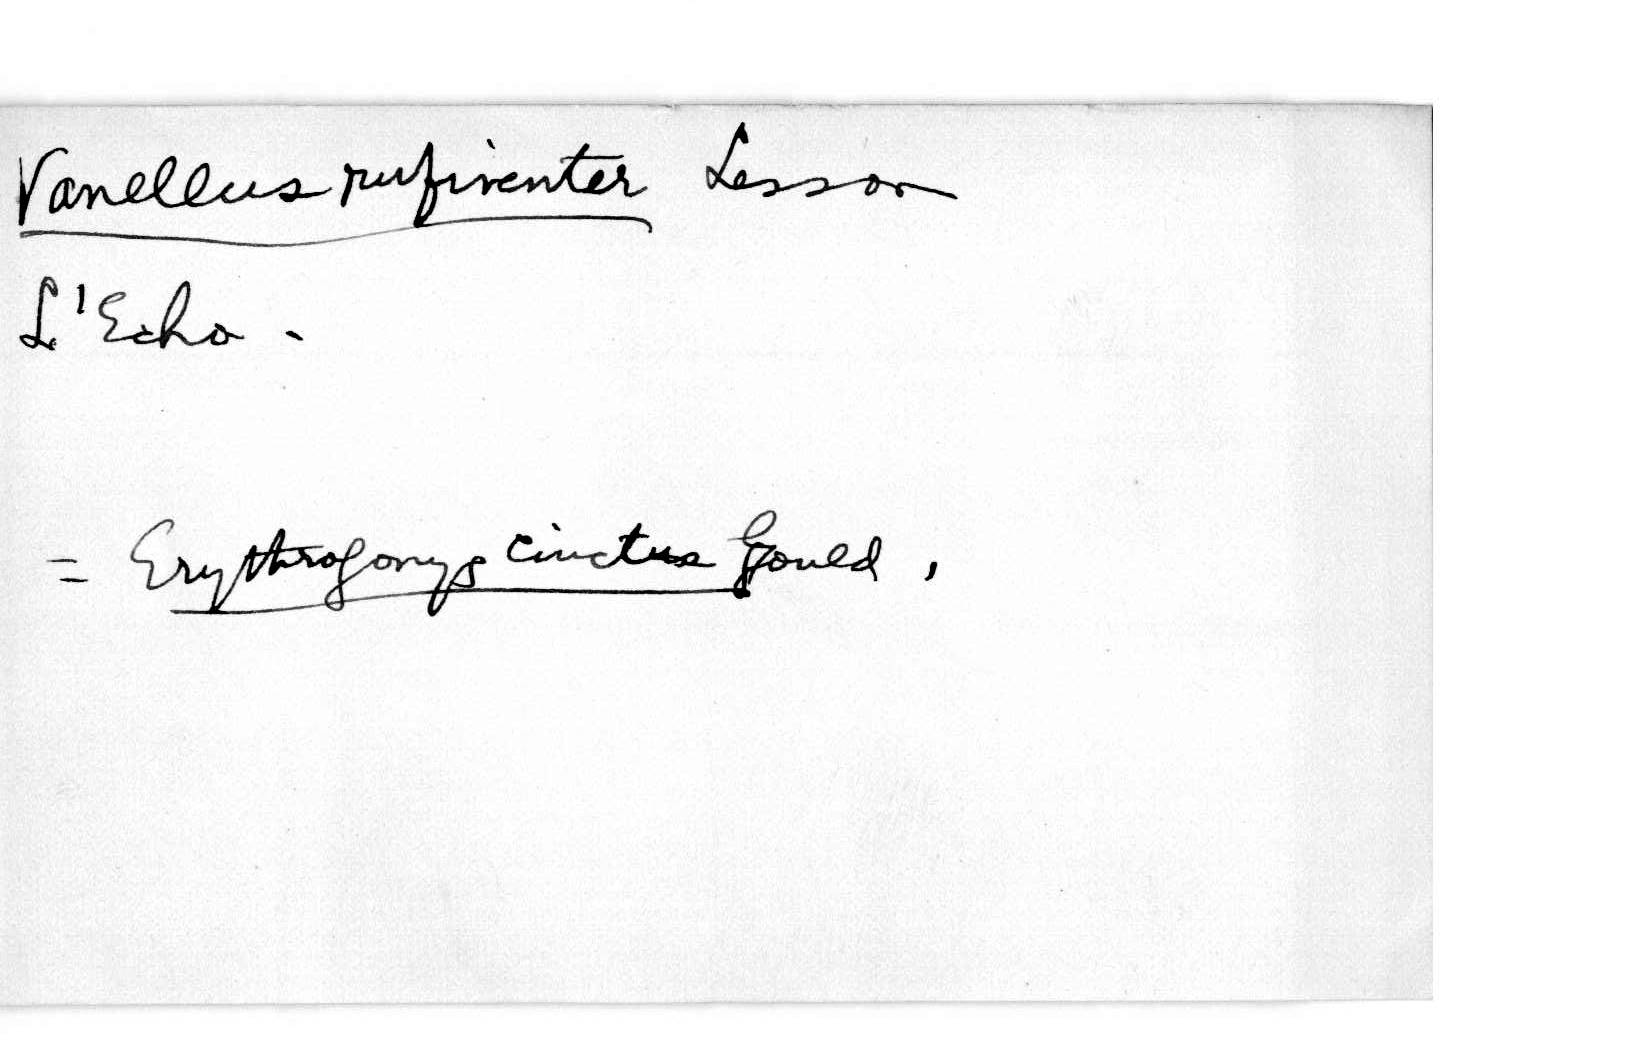 Vanellus rufiventer Lesson
L'Echo.
= Erythrogonys cinctus Gould,